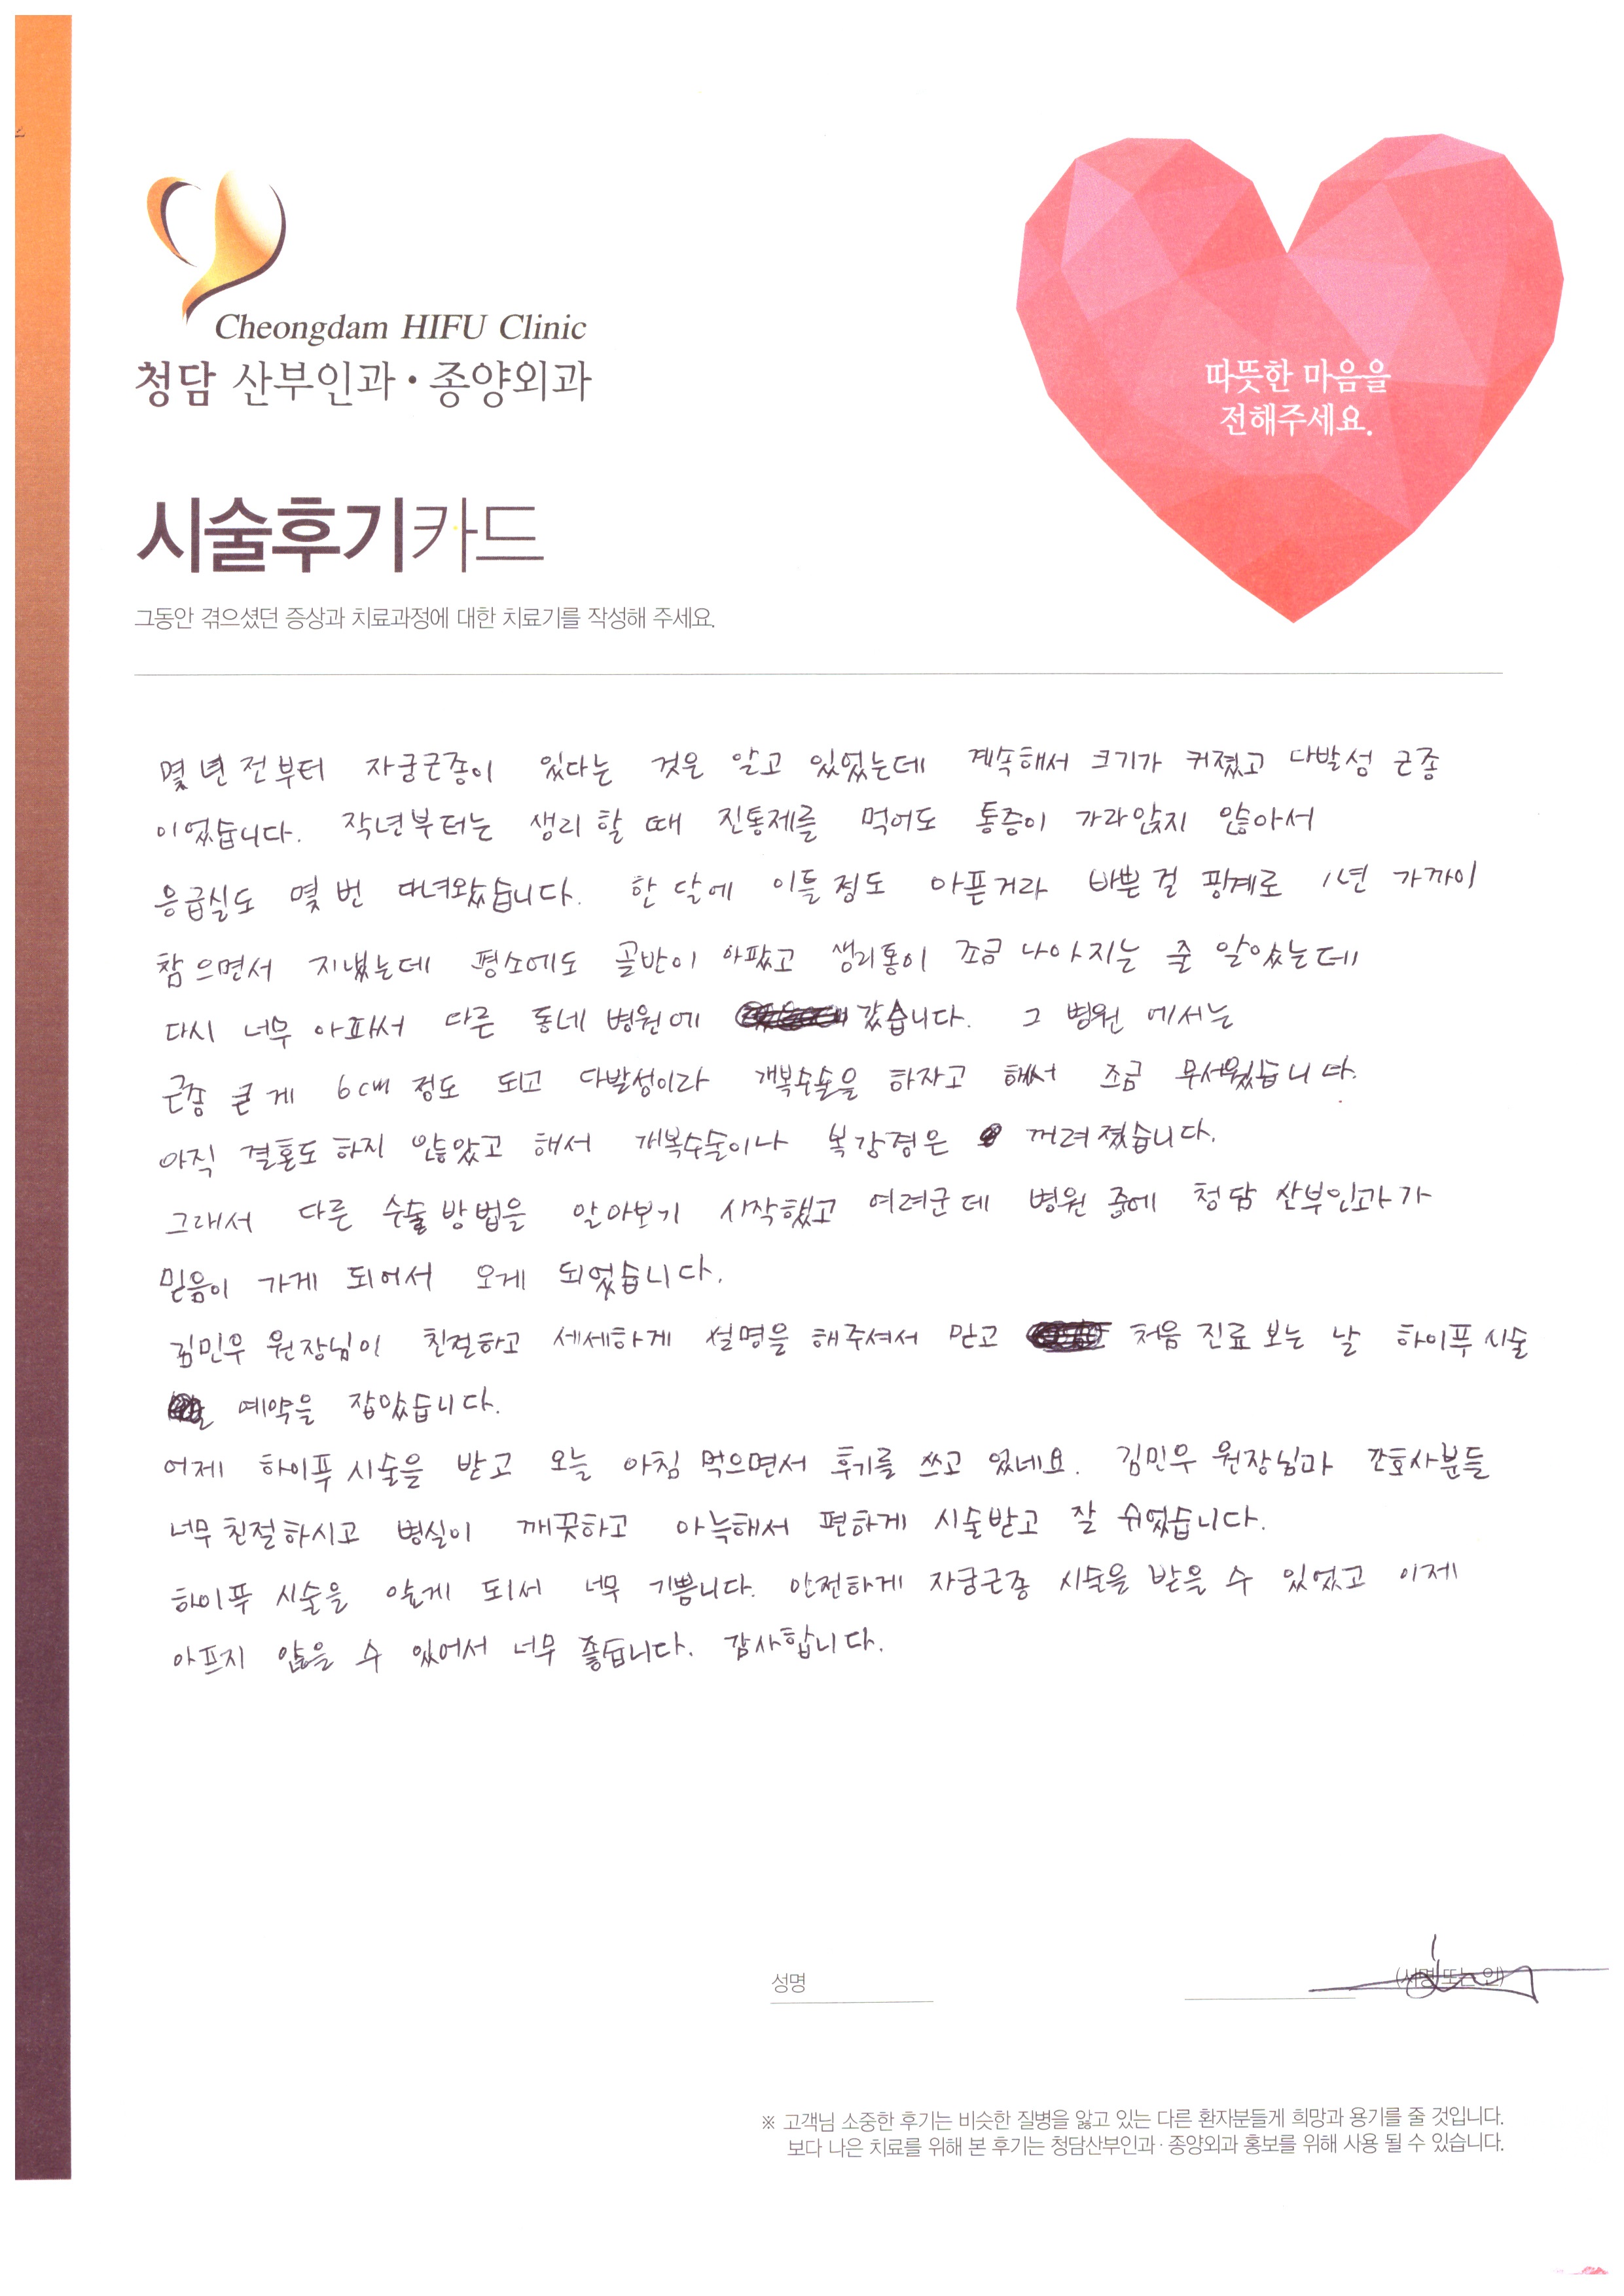 Cheongdam HIFU Clinic
청담 산부인과·종양외과
따뜻한 마음을
전해주세요.
시술후기카드
그동안 겪으셨던 증상과 치료과정에 대한 치료기를 작성해 주세요.
몇 년 전부터 자궁근종이 있다는 것은 알고 있었는데 계속해서 크기가 커졌고 다발성 근종
이었습니다. 작년부터는 생리 할 때 진통제를 먹어도 통증이 가라앉지 않아서
응급실도 몇 번 다녀왔습니다. 한 달에 이틀 정도 아픈거라 바쁜 걸 핑계로 1년 가까이
참으면서 지냈는데 평소에도 골반이 아팠고 생리통이 조금 나아지는 줄 알았는데
다시 너무 아파서 다른 동네 병원에 갔습니다. 그 병원 에서는
근종 큰 게 6cm 정도 되고 다발성이라 개복수술을 하자고 해서 조금 무서웠습니다.
아직 결혼도 하지 않았고 해서 개복수술이나 복강경은 꺼려졌습니다.
그래서 다른 수술 방법을 알아보기 시작했고 여려군데 병원 중에 청담 산부인과가
믿음이 가게 되어서 오게 되었습니다.
김민우 원장님이 친절하고 세세하게 설명을 해주셔서 믿고 처음 진료 보는 날 하이푸 시술
예약을 잡았습니다.
어제 하이푸 시술을 받고 오늘 아침 먹으면서 후기를 쓰고 있네요. 김민우 원장님과 간호사분들
너무 친절하시고 병실이 깨끗하고 아늑해서 편하게 시술받고 잘 쉬었습니다.
하이푸 시술을 알게 되서 너무 기쁩니다. 안전하게 자궁근종 시술을 받을 수 있었고 이제
아프지 않을 수 있어서 너무 좋습니다. 감사합니다.
성명 (서명 또는 인)
※ 고객님 소중한 후기는 비슷한 질병을 앓고 있는 다른 환자분들게 희망과 용기를 줄 것입니다.
보다 나은 치료를 위해 본 후기는 청담산부인과·종양외과 홍보를 위해 사용 될 수 있습니다.